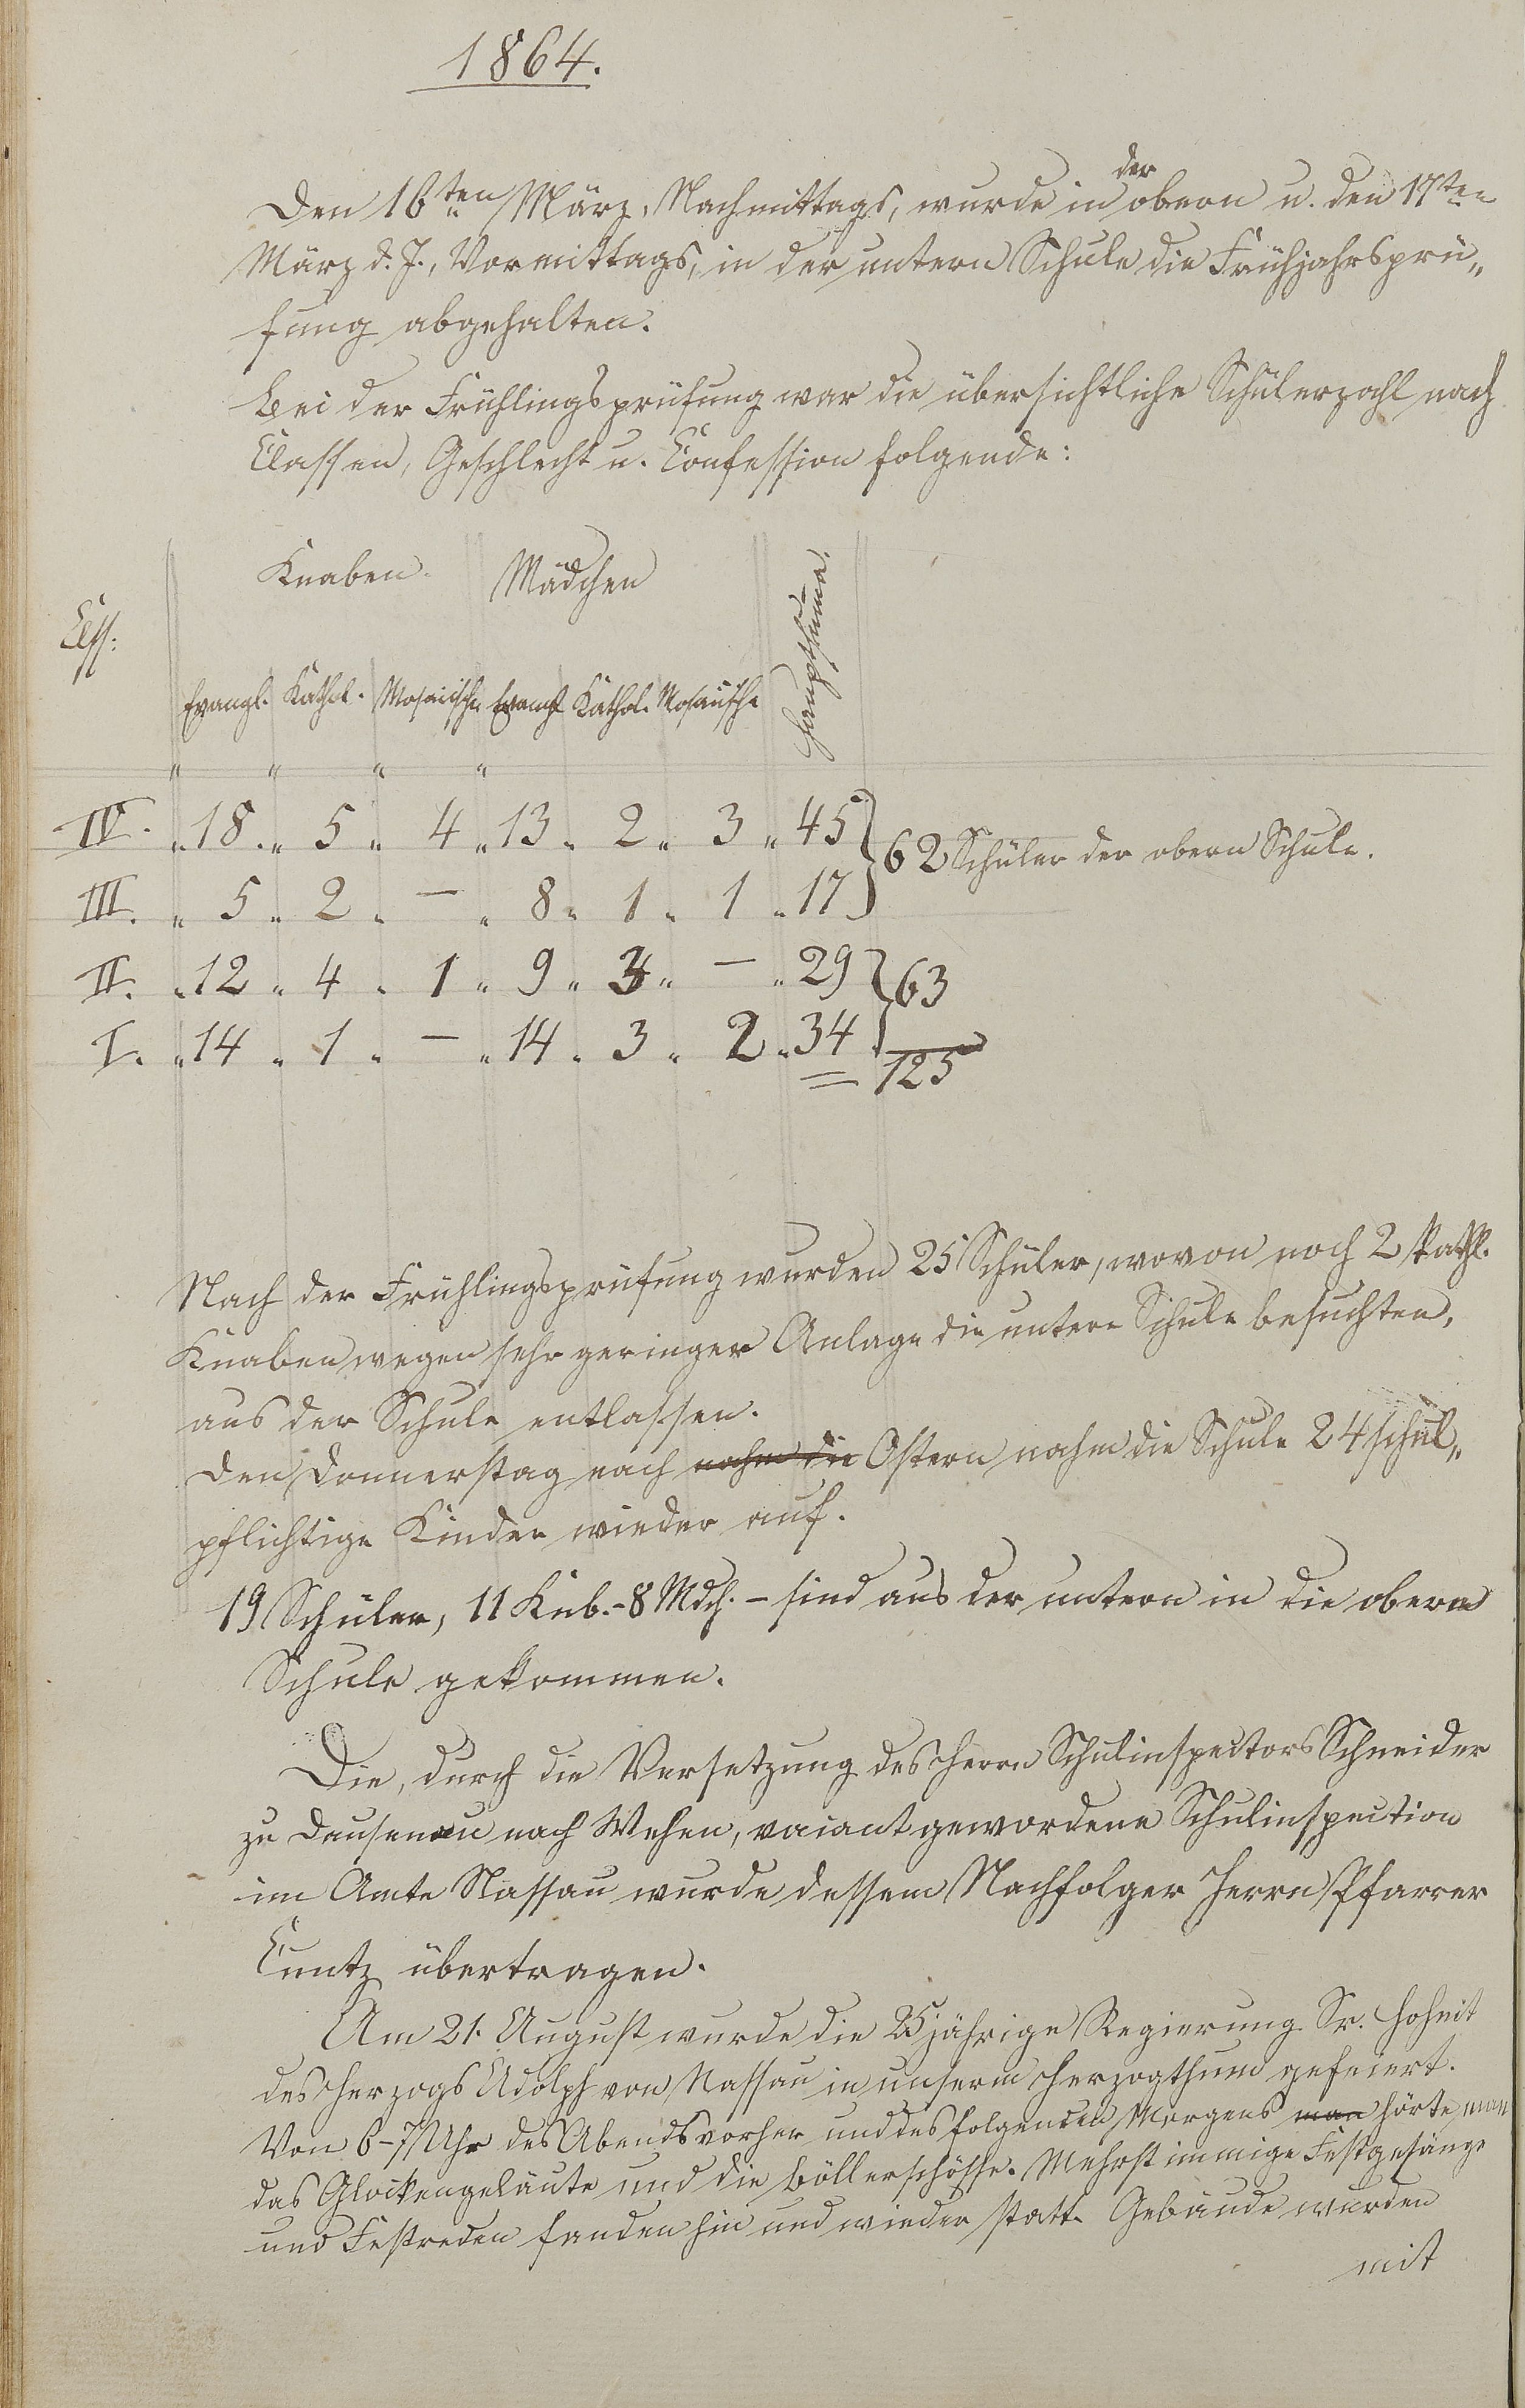 1864.
der
Den 16ten März, Nachmittags, wurde in obern u. den 17ten
März d. J., Vormittags, in der untern Schule die Frühjahrsprü„
fung abgehalten.
Bei der Frühlingsprüfung war die übersichtliche Schülerzahl nach
Classen, Geschlecht u. Confession folgende:
Knaben. Mädchen Hauptsumma.
Clss:
Evangl. Kathol. Mosaische Evangl Kathol. Mosaische
" " " "
IV. " 18. " 5 " 4 " 13 " 2 " 3 " 45 } 62 Schüler der obern Schule.
III. " 5 " 2 " — " 8 " 1 " 1 " 17
II. " 12 " 4 " 1 " 9 " 3 " — " 29 } 63
I. " 14 " 1 " — " 14 " 3 " 2 " 34
= 125
Nach der Frühlingsprüfung wurden 25 Schüler, wovon noch 2 kathl.
Knaben wegen sehr geringer Anlage die untere Schule besuchten,
aus der Schule entlassen.
Den Donnerstag nach nahm die Ostern nahm die Schule 24 schul„
pflichtige Kinder wieder auf.
19 Schüler, 11 Knb. - 8 Mdch. - sind aus der untern in die obere
Schule gekommen.
Die, durch die Versetzung des Herrn Schulinspectors Schneider
zu Dausenau nach Wehen, vacant gewordene Schulinspection
im Amte Nassau wurde dessem Nachfolger Herrn Pfarrer
Cuntz übertragen.
Am 21. August wurde die 25 jährige Regierung Sr. Hoheit
des Herzogs Adolph von Nassau in unserm Herzogthum gefeiert.
Von 6-7 Uhr des Abends vorher und des folgenden Morgens man hörte man
das Glockengeläute und die Böllerschösse. Mehrstimmige Festgesänge
und Festreden fanden hin und wieder statt. Gebäude wurden
mit